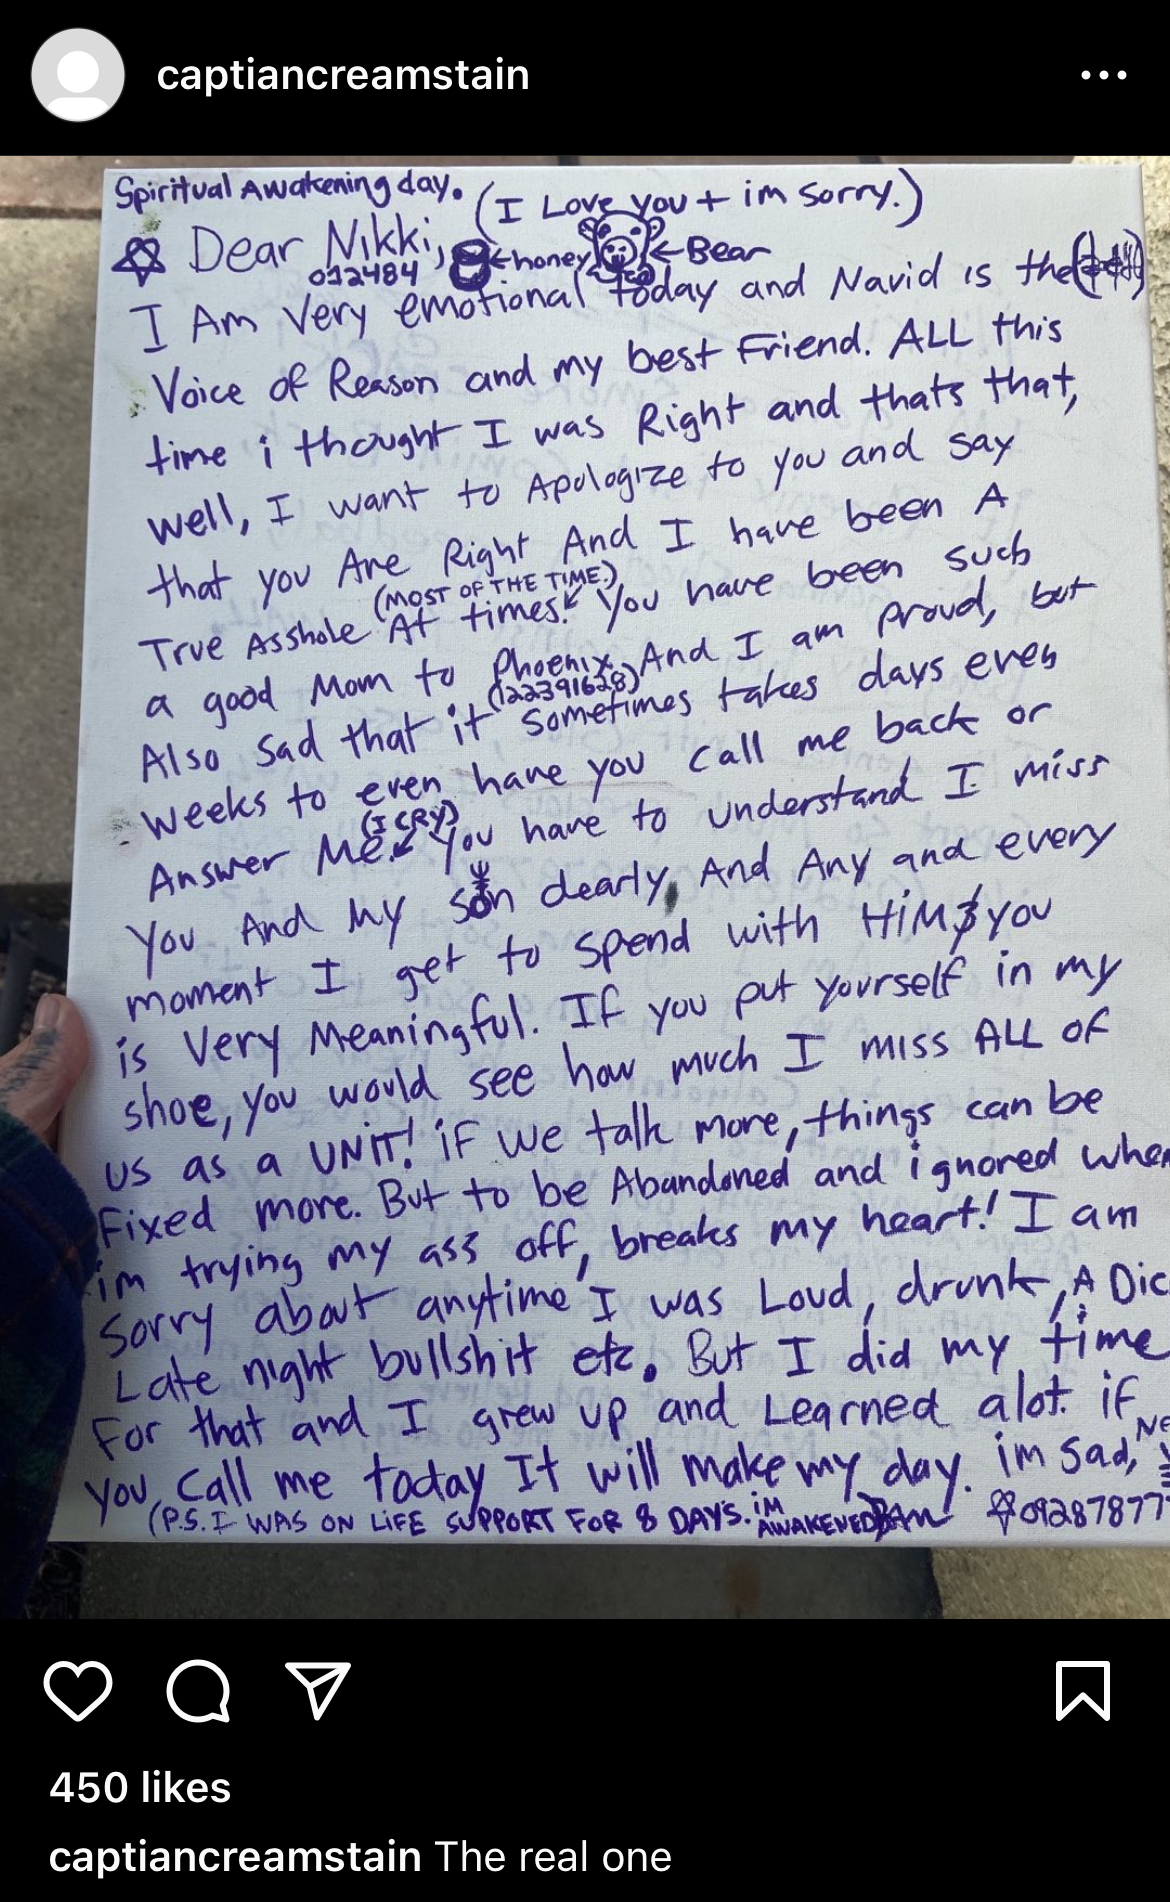 captiancreamstain
Spiritual Awakening day. (I Love you + im sorry.)
Dear Nikki, honey Bear
012484
I Am Very emotional today and Navid is the
Voice of Reason and my best Friend. ALL this
time i thought I was Right and thats that,
well, I want to Apologize to you and say
that you Are Right And I have been A
(MOST OF THE TIME.)
True Asshole At times. You have been such
a good Mom to Phoenix, And I am proud, but
(122391628)
Also sad that it sometimes takes days even
weeks to even have you call me back or
(I CRY)
Answer Me. You have to understand I miss
You And My son dearly, And Any and every
moment I get to spend with HiM $ you
is Very Meaningful. If you put yourself in my
shoe, you would see how much I miss ALL OF
us as a UNiT! iF we talk more, things can be
Fixed more. But to be Abandoned and ignored when
im trying my ass off, breaks my heart! I am
Sorry about anytime I was Loud, drunk, A Dic
Late night bullshit etc. But I did my time
For that and I grew up and Learned alot. if
you call me today It will make my day. im sad,
(P.S. I WAS ON LiFE SUPPORT FOR 8 DAYS. iM AWAKENED BAM 09287877
450 likes
captiancreamstain The real one